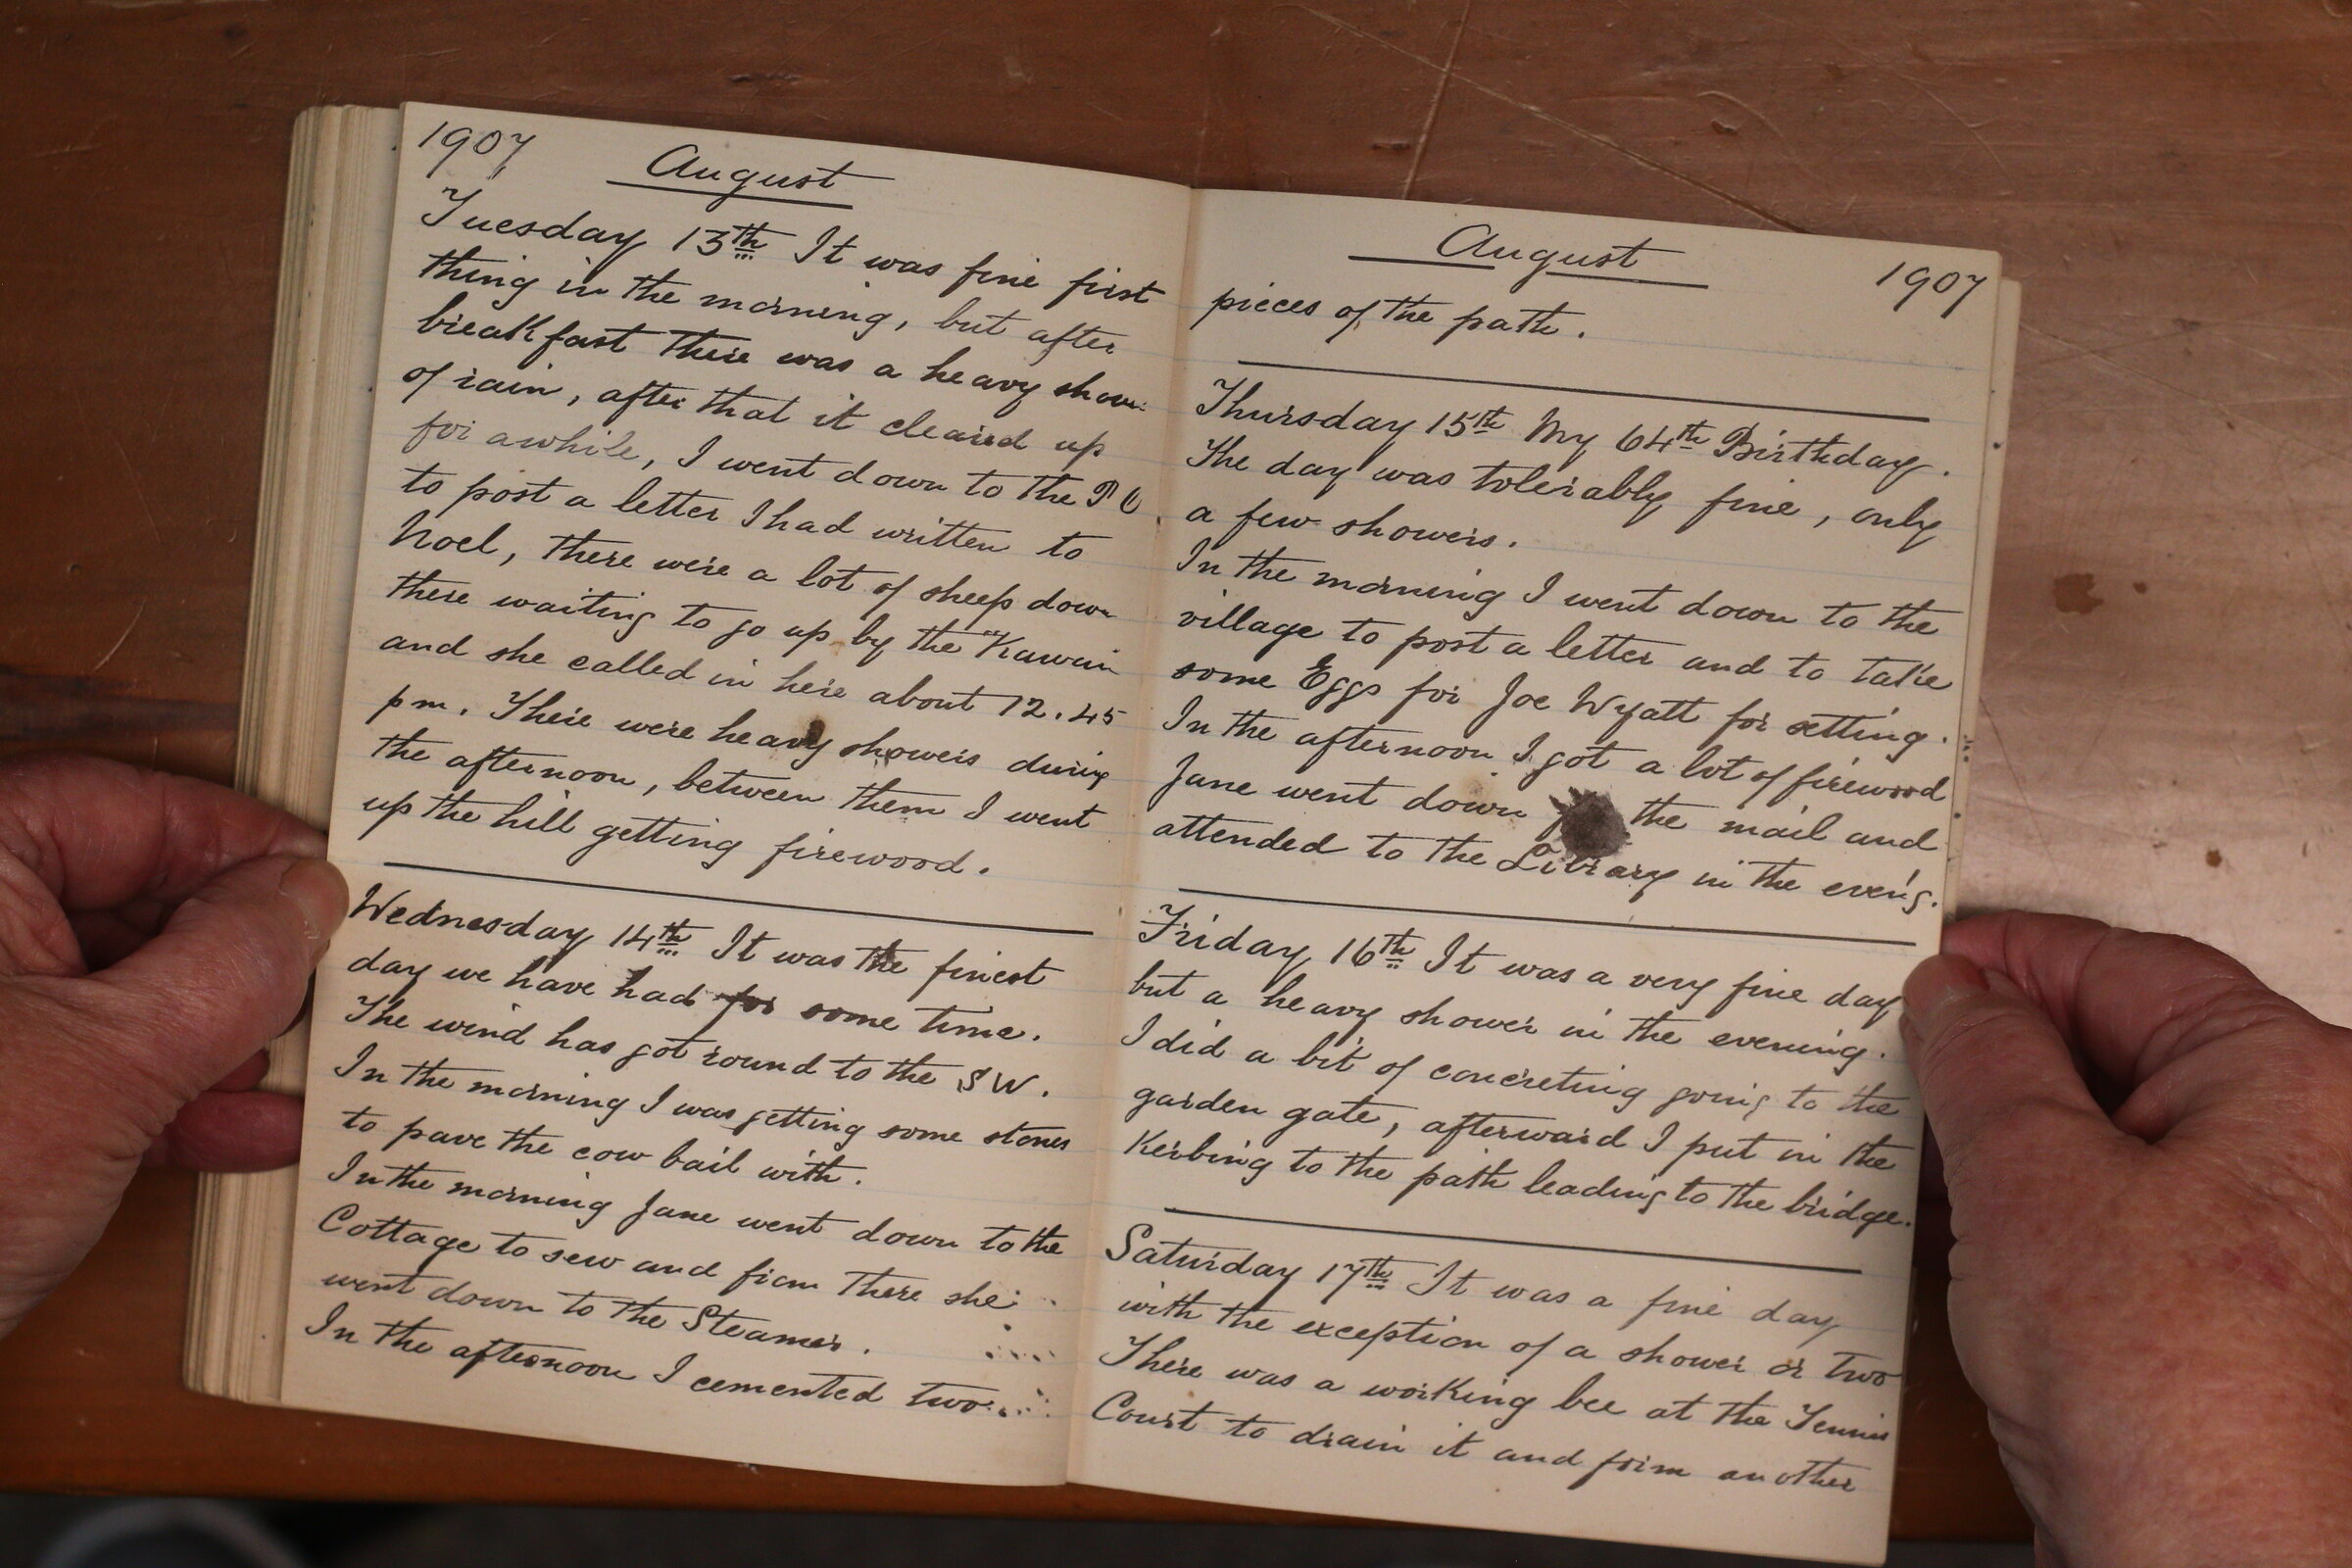 1907
August
Tuesday 13th It was fine first
thing in the morning, but after
breakfast there was a heavy shower
of rain, after that it cleared up
for awhile, I went down to the P O.
to post a letter I had written to
Noel, there were a lot of sheep down
there waiting to go up by the "Kawau
and she called in here about 12.45
pm. There were heavy showers during
the afternoon, between them I went
up the hill getting firewood.
Wednesday 14th It was the finest
day we have had for some time.
The wind has got round to the S W.
In the morning I was getting some stones
to pave the cow bail with.
In the morning Jane went down to the
Cottage to sew and from there she
went down to the Steamer.
In the afternoon I cemented two
August
1907
pieces of the path.
Thursday 15th My 64th Birthday.
The day was tolerably fine, only
a few showers.
In the morning I went down to the
village to post a letter and to take
some Eggs for Joe Wyatt for setting.
In the afternoon I got a lot of firewood
Jane went down the mail and
attended to the Library in the even'g.
Friday 16th It was a very fine day
but a heavy shower in the evening.
I did a bit of concreting going to the
garden gate, afterward I put in the
Kerbing to the path leading to the bridge.
Saturday 17th It was a fine day
with the exception of a shower or two
There was a working bee at the Tennis
Court to drain it and form another